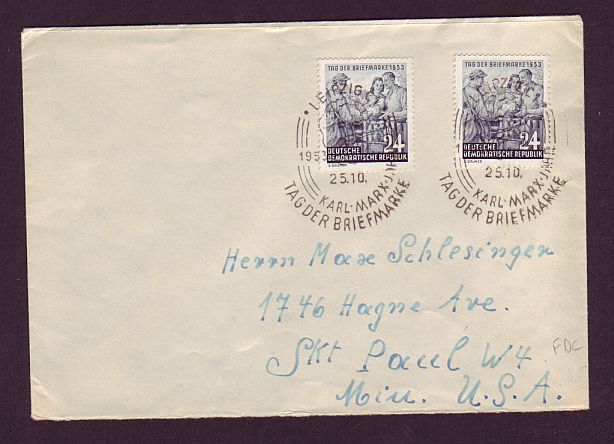 TAG DER BRIEFMARKE 1953
24
DEUTSCHE
DEMOKRATISCHE REPUBLIK
LEIPZIG C1
1953
25.10.
KARL-MARX-JAHR
TAG DER BRIEFMARKE
TAG DER BRIEFMARKE 1953
24
DEUTSCHE
DEMOKRATISCHE REPUBLIK
25.10.
KARL-MARX-JAHR
TAG DER BRIEFMARKE
Herrn Max Schlesinger
1746 Hagne Ave.
Skt Paul W4.
Min. U.S.A.
FDC